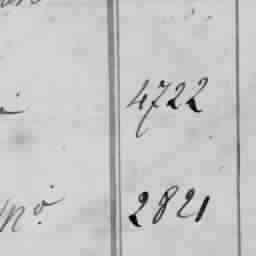 4722
Mº. 2821